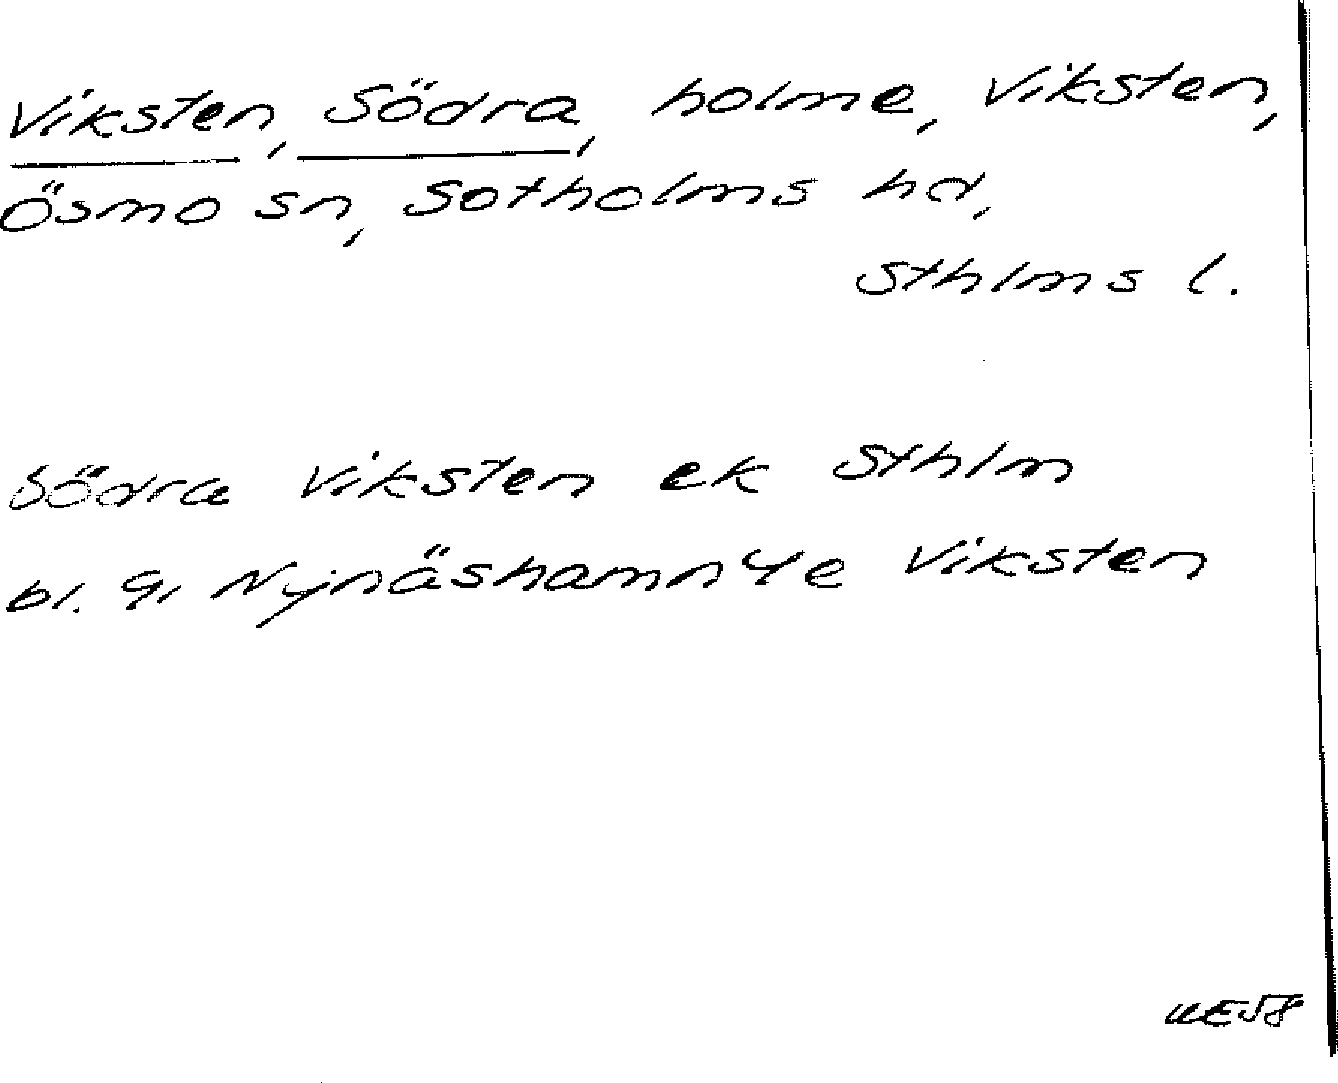 Viksten, Södra, holme, Viksten,
Ösmo sn, Sotholms hd,
Sthlms l.
Södra Viksten ek Sthlm
bl. 9, Nynäshamn 4e Viksten
UE58